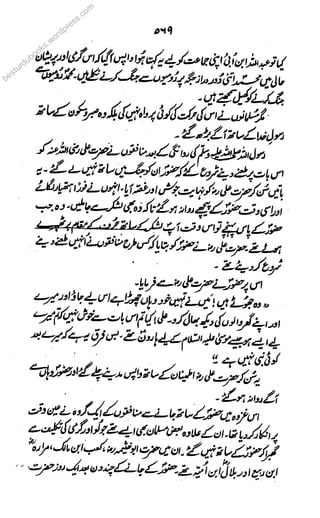 ۵۶۹
کیا تو عبداللہ ابن اُبی اپنی جماعت کو لیے یہ کہتا ہوا واپس آگیا کہ اس گرمی اور پریشان
حالی میں محمد اتنی دور دراز جگہ پر رومیوں سے جنگ کرنے نکلے ہیں۔ محمدؐ رومیوں سے
جنگ کرنے کو کھیل سمجھتے ہیں۔
مگر مسلمانوں نے اس کی حرکت کی کوئی پرواہ نہیں کی بلکہ وہ صبر و سکون کے ساتھ
رسولِ خدا کے ساتھ آگے بڑھ گئے۔
رسول اللہ صلی اللہ علیہ وسلم کی روانگی کے بعد منافقوں نے حضرت علی رضی اللہ عنہ کو
اس بات پر طعنے دینے شروع کئے کہ حضورؐ ان کو جنگ میں ساتھ نہیں لے گئے۔ یہ
باتیں سن کر حضرت علیؓ کو نہایت جوش اور غصّہ آیا۔ انہوں نے فوراً ہتھیار لگائے
اور اسی وقت حضورؐ کے پیچھے روانہ ہو گئے تاکہ وہ بھی لشکر سے جا ملیں۔ وہ جب
حضورؐ کے پاس پہنچے تو اس وقت آپ لشکر کے ساتھ جُرف کے مقام پر ٹھہرے
ہوئے تھے، حضرت علیؓ نے حضورؐ کو بتایا کہ کس طرح منافقوں نے اُنہیں طعنے دینے
شروع کر دیئے تھے۔
اس پر حضورؐ نے حضرت علیؓ سے فرمایا۔
"وہ جھوٹے ہیں! میں نے تمہیں خود وہاں چھوڑا ہے اس لیے جاؤ اور میرے
اور اپنے گھر والوں کی دیکھ بھال کرو۔ علی! کیا تم اس بات سے خوش نہیں کہ تم میرے
لیے ایسے ہو جیسے موسیٰ علیہ السلام کے لیے ہارون تھے، بس فرق یہ ہے کہ میرے بعد
کوئی نبی نہیں ہے"
یہ سن کر حضرت علیؓ اطمینان کے ساتھ واپس مدینے چلے گئے اور حضورؐ وہاں سے
آگے روانہ ہو گئے۔
اس غزوہ میں حضورؐ کے ساتھ جانے سے منافقوں کے ایک گروہ نے عین وقت
پر انکار کر دیا تھا۔ ان کے علاوہ بعض مسلمان بھی ایسے تھے جو لُو اور گرمی کی تکلیف سے
گھبرا کر حضورؐ کے ساتھ نہیں گئے۔ ان میں حضرت ابوخیثمہؓ، کعب ابن مالک، مرارہؓ
ابن ربیع اور ہلالؓ ابن اُمیّہ تھے۔ حضورؐ کے جانے کے چند دن بعد ایک روز حضرت
besturdubooks.wordpress.com